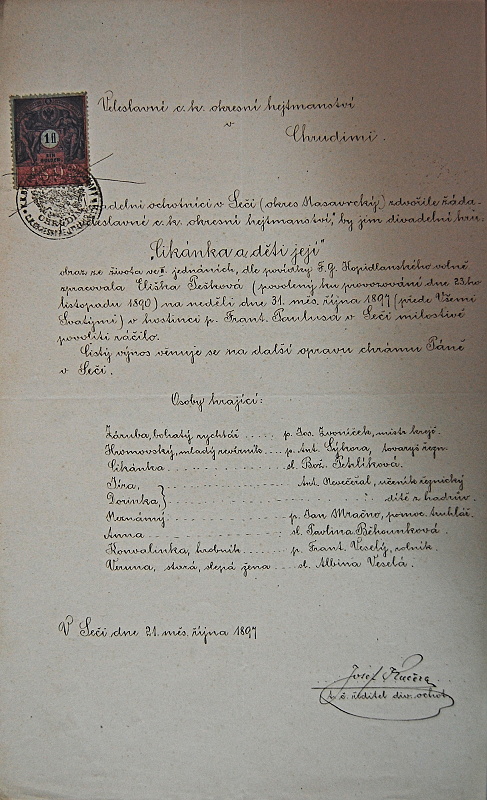 Veleslavné c. k. okresní hejtmanství
v
Chrudimi.
1 fl
EIN GULDEN
adelní ochotníci v Seči (okres Nasavrcký) zdvořile žáda-
eleslavné c. k. okresní hejtmanství," by jim divadelní hru:
„Cikánka a děti její"
obraz ze života ve jednáních, dle povídky F. G. Hopidlanského volně
zpracovala Eliška Pešková (povolený ku provozování dne 23ho
listopadu 1890) na neděli dne 31. měs. října 1897 (přede Všemi
Svatými) v hostinci p. Frant. Paulusa v Seči milostivě
povoliti ráčilo.
Čistý výnos věnuje se na další opravu chrámu Páně
v Seči.
Osoby hrající:
Záruba, bohatý rychtář ..... p. Jos. Zvoníček, mistr krejč.
Hromovský, mladý revírník ... p. Ant. Sýkora, tovaryš řezn.
Cikánka ............... sl. Bož. Pehlíková.
Jíra, } ................ Ant. Nevečeřal, učeník řeznický
Dorinka, } ............... dítě z hadrův.
Neznámý ............... p. Jan Mračno, pomoc. truhlář.
Anna ................. sl. Pavlina Běhounková.
Konvalinka, hrobník ....... p. Frant. Veselý, rolník.
Veruna, stará, slepá žena .... sl. Albina Veselá.
V Seči dne 21. měs. října 1897
Josef Kučera
t. č. ředitel div. ochot.